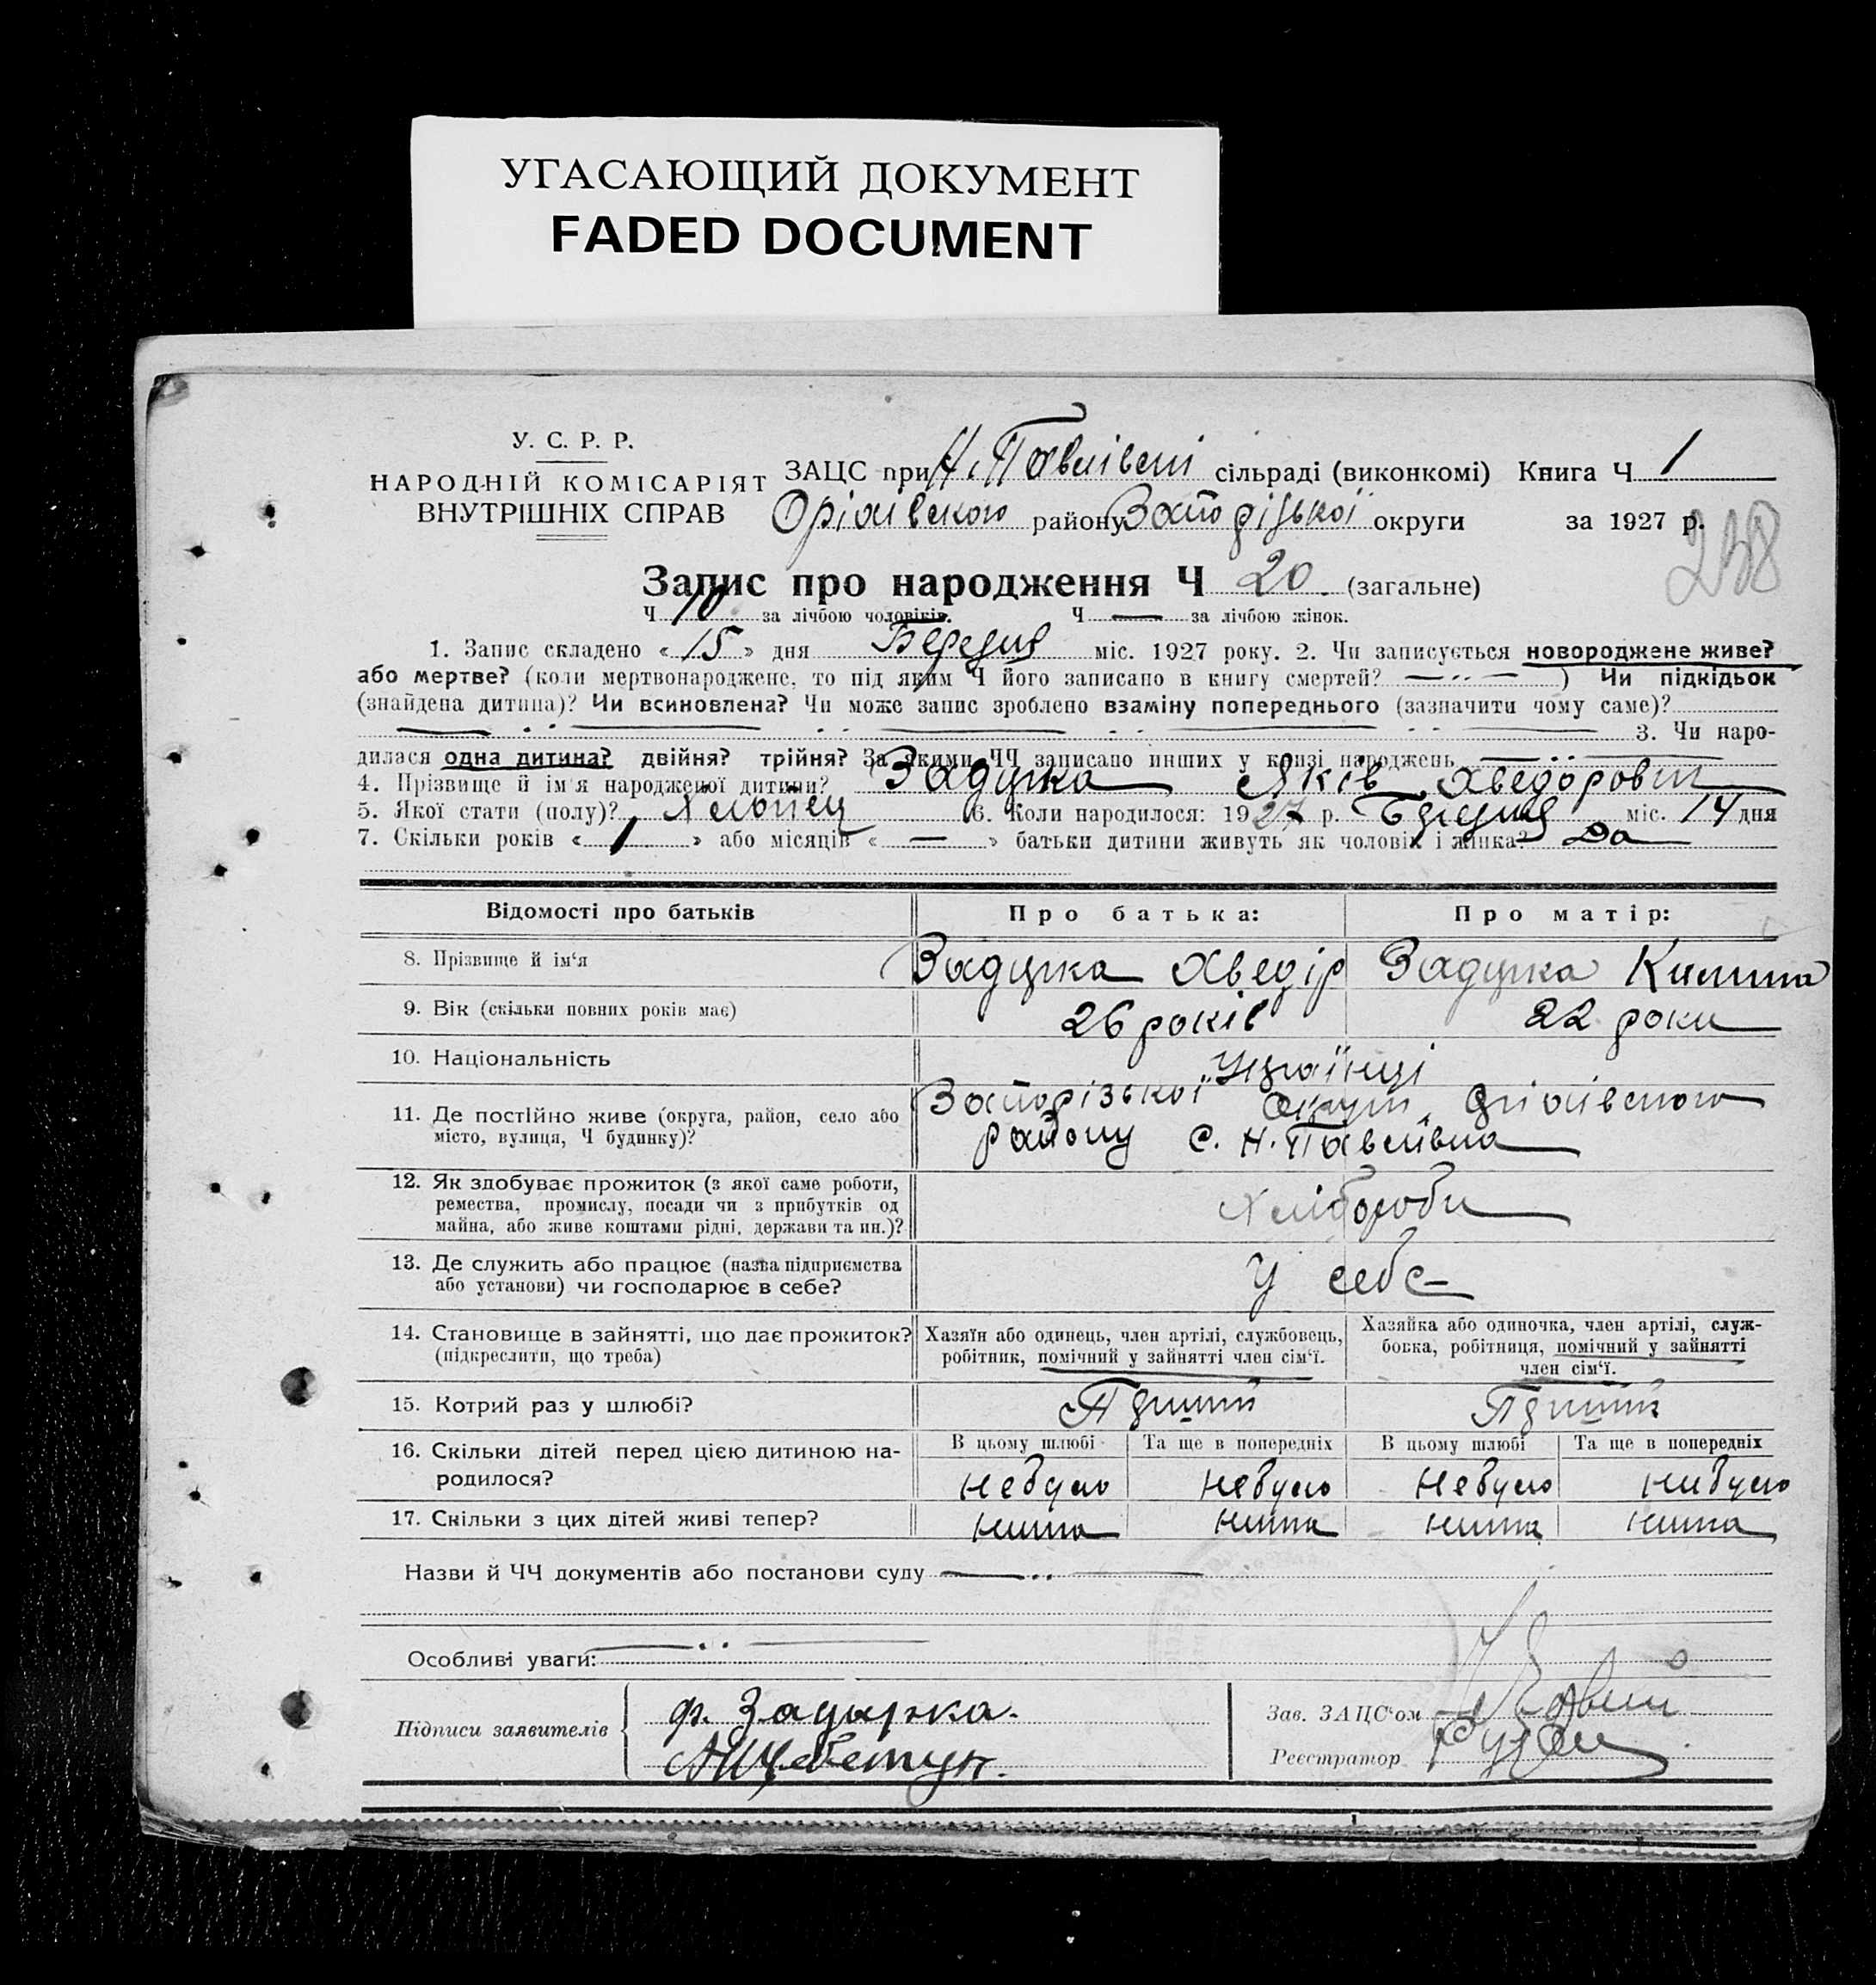 УГАСАЮЩИЙ ДОКУМЕНТ
FADED DOCUMENT
У. С. Р. Р.
НАРОДНІЙ КОМІСАРІЯТ
ВНУТРІШНІХ СПРАВ
ЗАЦС при Н. Павлівскі сільраді (виконкомі) Книга Ч 1
Оріхівского району Запорізької округи за 1927 р.
238
Запис про народження Ч 20. (загальне)
Ч 10 за лічбою чоловіків. Ч — за лічбою жінок.
1. Запис складено «15» дня Березня міс. 1927 року. 2. Чи записується новороджене живе?
або мертве? (коли мертвонароджене, то під яким Ч його записано в книгу смертей? —··—) Чи підкідьок
(знайдена дитина)? Чи всиновлена? Чи може запис зроблено взаміну попереднього (зазначити чому саме)?
3. Чи наро-
дилася одна дитина? двійня? трійня? За якими ЧЧ записано инших у книзі народжень
4. Прізвище й ім'я народженої дитини? Задирка Яків Хведорович
5. Якої стати (полу)? Хлопец 6. Коли народилося: 1927 р. Березня міс. 14 дня
7. Скільки років «1» або місяців «—» батьки дитини живуть як чоловік і жінка? Да
Відомості про батьків
Про батька:
Про матір:
8. Прізвище й ім'я
Задирка Хведір
Задирка
9. Вік (скільки повних років має)
26 років
22 роки
10. Національність
Українці
11. Де постійно живе (округа, район, село або
місто, вулиця, Ч будинку)?
Запорізької округи, Оріхівского
району с. Н. Павлівка
12. Як здобуває прожиток (з якої саме роботи,
ремества, промислу, посади чи з прибутків од
майна, або живе коштами рідні, держави та ин.)?
Хлібороби
13. Де служить або працює (назва підприємства
або установи) чи господарює в себе?
У себе
14. Становище в зайнятті, що дає прожиток?
(підкреслити, що треба)
Хазяїн або одинець, член артілі, службовець,
робітник, помічний у зайнятті член сім'ї.
Хазяйка або одиночка, член артілі, служ-
бовка, робітниця, помічний у зайнятті
член сім'ї.
15. Котрий раз у шлюбі?
Перший
Перший
16. Скільки дітей перед цією дитиною на-
родилося?
В цьому шлюбі
Та ще в попередніх
В цьому шлюбі
Та ще в попередніх
небуло
небуло
небуло
нибуло
17. Скільки з цих дітей живі тепер?
нима
нима
нима
нима
Назви й ЧЧ документів або постанови суду
Особливі уваги:
Підписи заявителів
ф. Задырка.
А Щебетун.
Зав. ЗАЦС'ом
Реєстратор